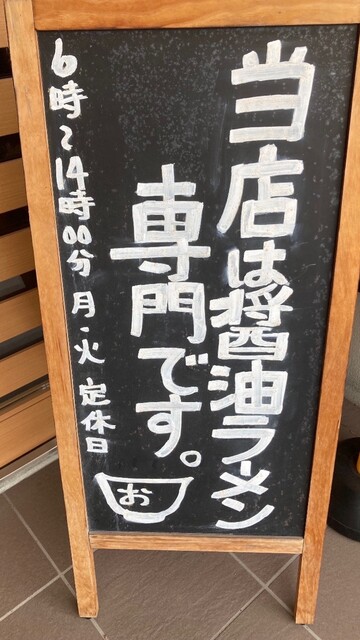 当店は醤油ラーメン
専門です。
お
6時~14時00分 月・火 定休日